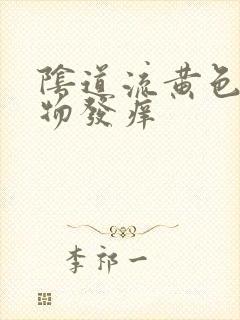 陰道流黃色
物發痒
李祁一